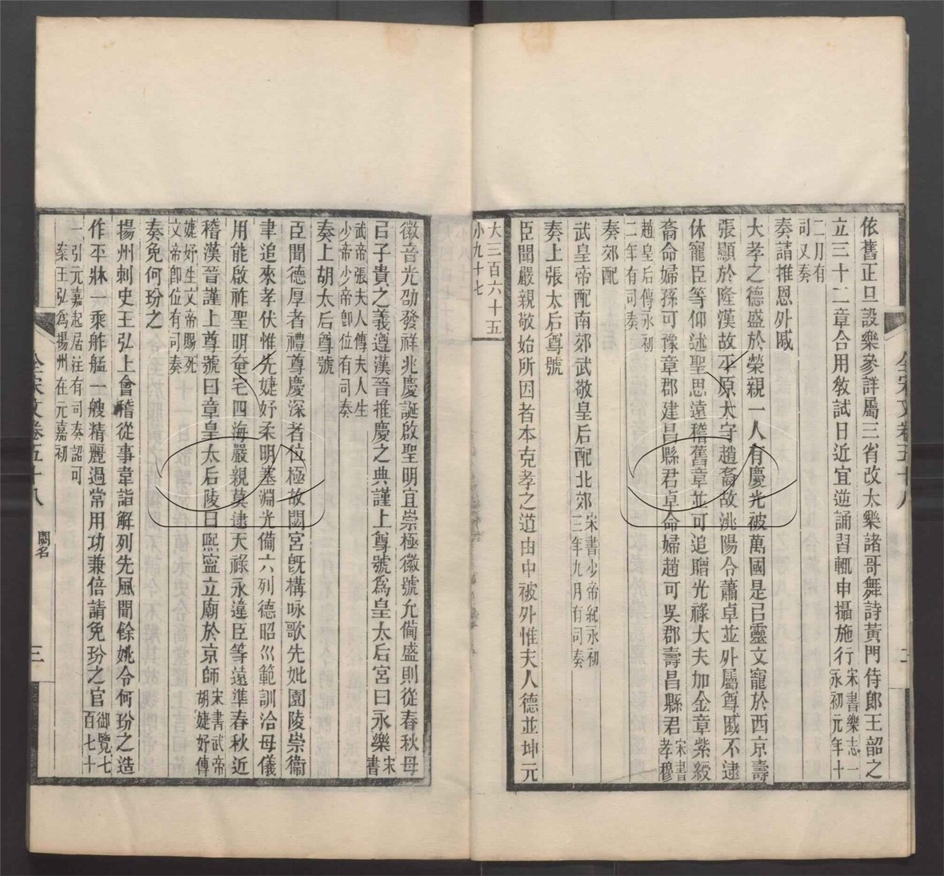 依舊正旦設樂參詳屬三省改太樂諸哥舞詩黃門侍郎王韶之
立三十二章合用敎試日近宜逆誦習輒申攝施行宋書樂志一永初元年十
二月有司又奏
奏請推恩外戚
大孝之德盛於榮親一人有慶光被萬國是㠯靈文寵於西京壽
張顯於隆漢故平原太守趙裔故洮陽令蕭卓並外屬尊戚不逮
休寵臣等仰述聖思遠稽舊章並可追贈光祿大夫加金章紫綬
裔命婦孫可豫章郡建昌縣君卓命婦趙可吳郡壽昌縣君宋書孝穆
趙皇后傳永初二年有司奏
奏郊配
武皇帝配南郊武敬皇后配北郊宋書少帝紀永初三年九月有司奏
奏上張太后尊號
臣聞嚴親敬始所因者本克孝之道由中被外惟夫人德並坤元
大三百六十五
小九十七
徽音光劭發祥兆慶誕啟聖明宜崇極徽號允備盛則從春秋母
㠯子貴之義遵漢晉推慶之典謹上尊號爲皇太后宮曰永樂宋書
武帝張夫人傳夫人生少帝少帝卽位有司奏
奏上胡太后尊號
臣聞德厚者禮尊慶深者位極故閟宮旣構咏歌先妣園陵崇衞
聿追來孝伏惟先婕妤柔明塞淵光備六列德昭巛範訓洽母儀
用能啟祚聖明奄宅四海嚴親莫逮天祿永違臣等遠準春秋近
稽漢晉謹上尊號曰章皇太后陵曰熙寧立廟於京師宋書武帝胡婕妤傳
婕妤生文帝賜死文帝卽位有司奏
奏免何玢之
揚州刺史王弘上會稽從事韋詣解列先風聞餘姚令何玢之造
作平牀一乘舴艋一艘精麗過常用功兼倍請免玢之官御覽七百七十
一引元嘉起居注有司奏詔可案王弘爲揚州在元嘉初
全宋文卷五十八
闕名
三
全宋文卷五十八